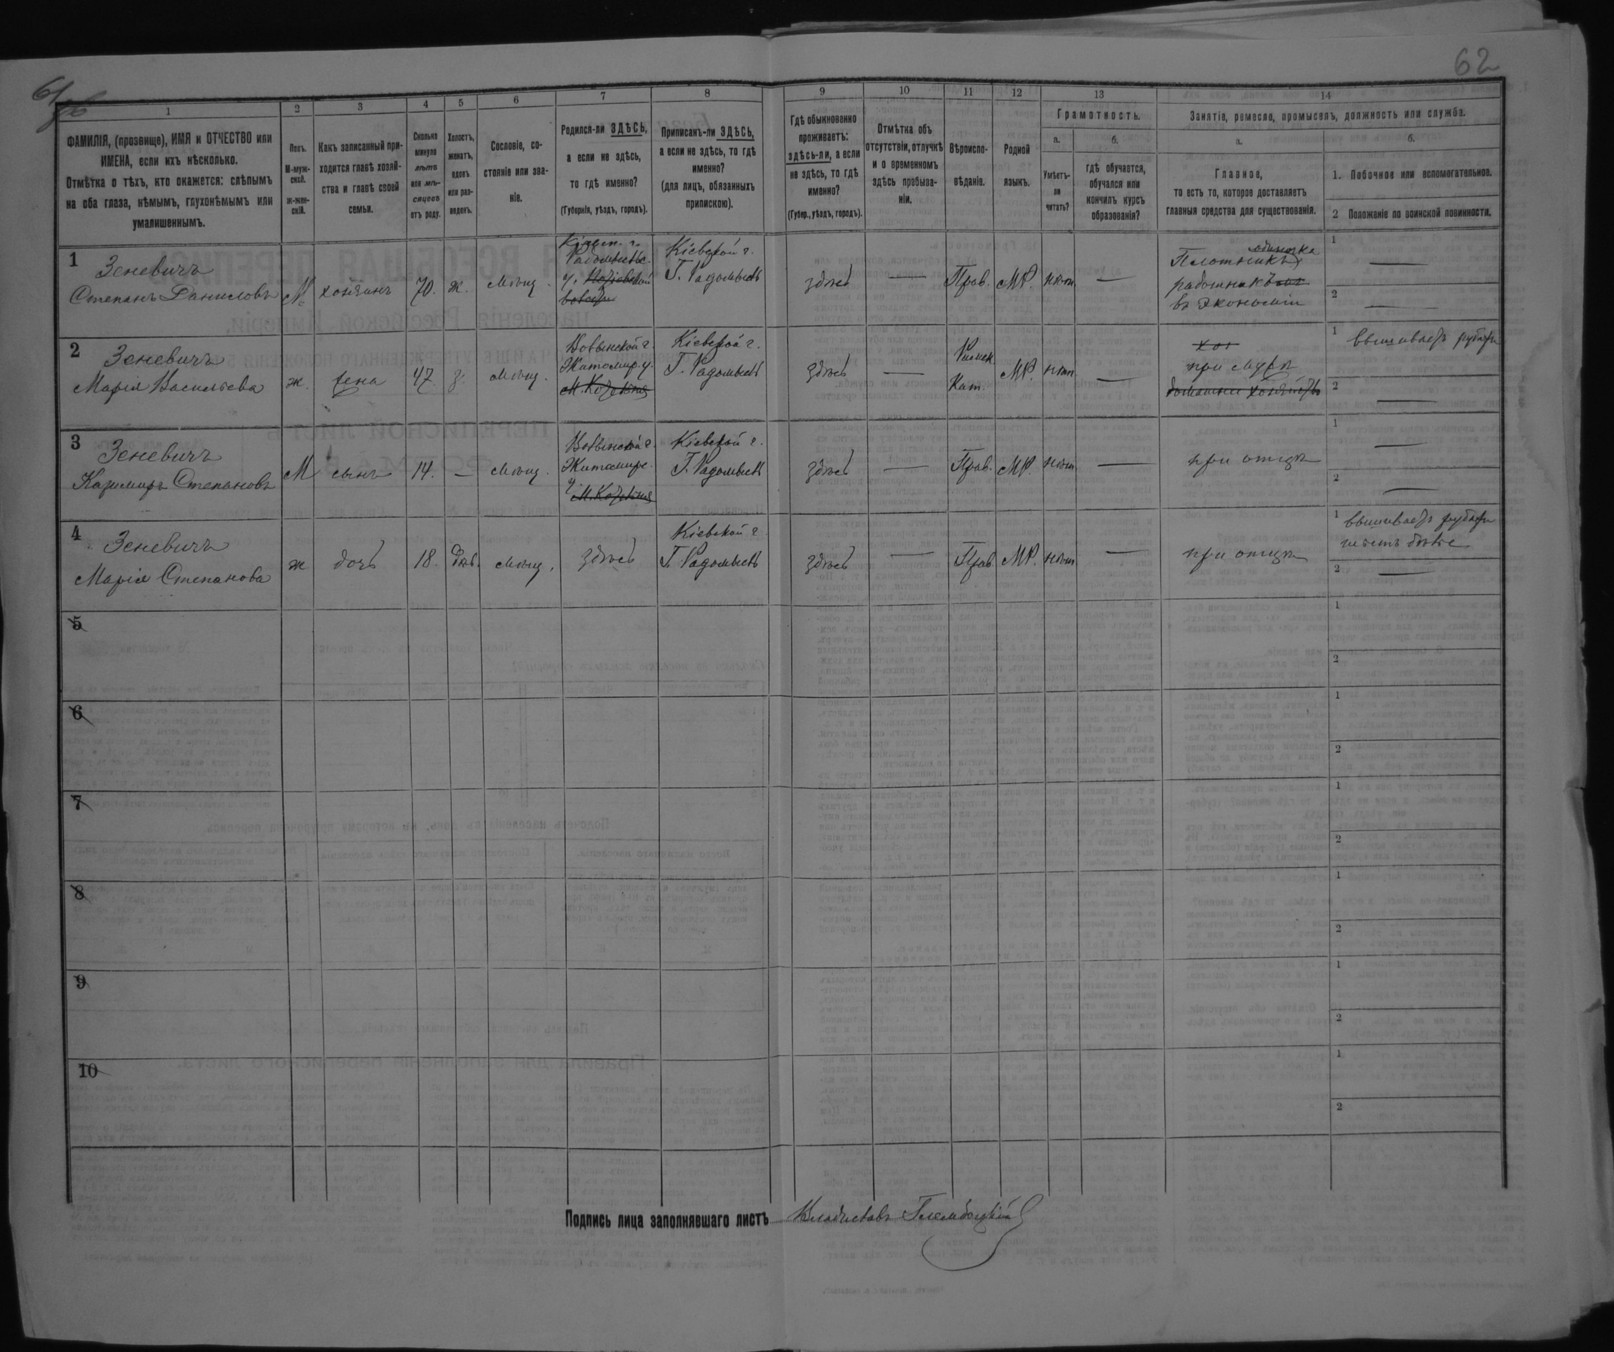 62
1
2
3
4
5
6
7
8
9
10
11
12
13
14
ФАМИЛІЯ, (прозвище), ИМЯ и ОТЧЕСТВО или
ИМЕНА, если ихъ нѣсколько.
Отмѣтка о тѣхъ, кто окажется: слѣпымъ
на оба глаза, нѣмымъ, глухонѣмымъ или
умалишеннымъ.
Полъ.
М-муж-
ской.
ж-жен-
скій.
Какъ записанный при-
ходится главѣ хозяй-
ства и главѣ своей
семьи.
Сколько
минуло
лѣтъ
или мѣ-
сяцевъ
отъ роду.
Холостъ,
женатъ,
вдовъ
или раз-
веденъ.
Сословіе, со-
стояніе или зва-
ніе.
Родился-ли ЗДѢСЬ,
а если не здѣсь,
то гдѣ именно?
(Губернія, уѣздъ, городъ).
Приписанъ-ли ЗДѢСЬ,
а если не здѣсь, то гдѣ
именно?
(для лицъ, обязанныхъ
припискою).
Гдѣ обыкновенно
проживаетъ:
здѣсь-ли, а если
не здѣсь, то гдѣ
именно?
(Губер., уѣздъ, городъ).
Отмѣтка объ
отсутствіи, отлучкѣ
и о временномъ
здѣсь пребыва-
ніи.
Вѣроиспо-
вѣданіе.
Родной
языкъ.
Грамотность.
а.
б.
Умѣетъ-
ли
читать?
гдѣ обучается,
обучался или
кончилъ курсъ
образованія?
Занятіе, ремесло, промыселъ, должность или служба.
а.
б.
Главное,
то есть то, которое доставляетъ
главныя средства для существованія.
1. Побочное или вспомогательное.
2 Положеніе по воинской повинности.
1
Зеневичъ
Степанъ Даниловъ
М
хозяинъ
70.
ж.
мѣщ.
Радомысльс
у.
Кіевской г.
Г. Радомысль
здѣсь
—
Прав.
МР.
нѣт.
—
Плотникъ
въ экономіи
1
—
2
—
2
Зеневичъ
Марія Васильева
ж.
жена
47.
з.
мѣщ.
Волынской г.
Житомир. у.
Кіевской г.
Г. Радомысль
здѣсь
—
Римск
Кат.
МР.
нѣт.
—
при мужѣ
1 вышиваетъ рубахи
2
—
3
Зеневичъ
Казимиръ Степановъ
М
сынъ
14.
—
мѣщ.
Волынской г.
Житомирс
у.
Кіевской г.
Г. Радомысль
здѣсь
—
Прав.
МР
нѣт
—
при отцѣ
1
—
2
—
4
Зеневичъ
Марія Степанова
ж
дочь
18.
дѣв.
мѣщ.
здѣсь
Кіевской г
Г. Радомысль
здѣсь
—
Прав
МР.
нѣт
—
при отцѣ
1 вышиваетъ рубахи
2
—
5
1
2
6
1
2
7
1
2
8
1
2
9
1
2
10
1
2
Подпись лица заполнявшаго листъ Владиславъ